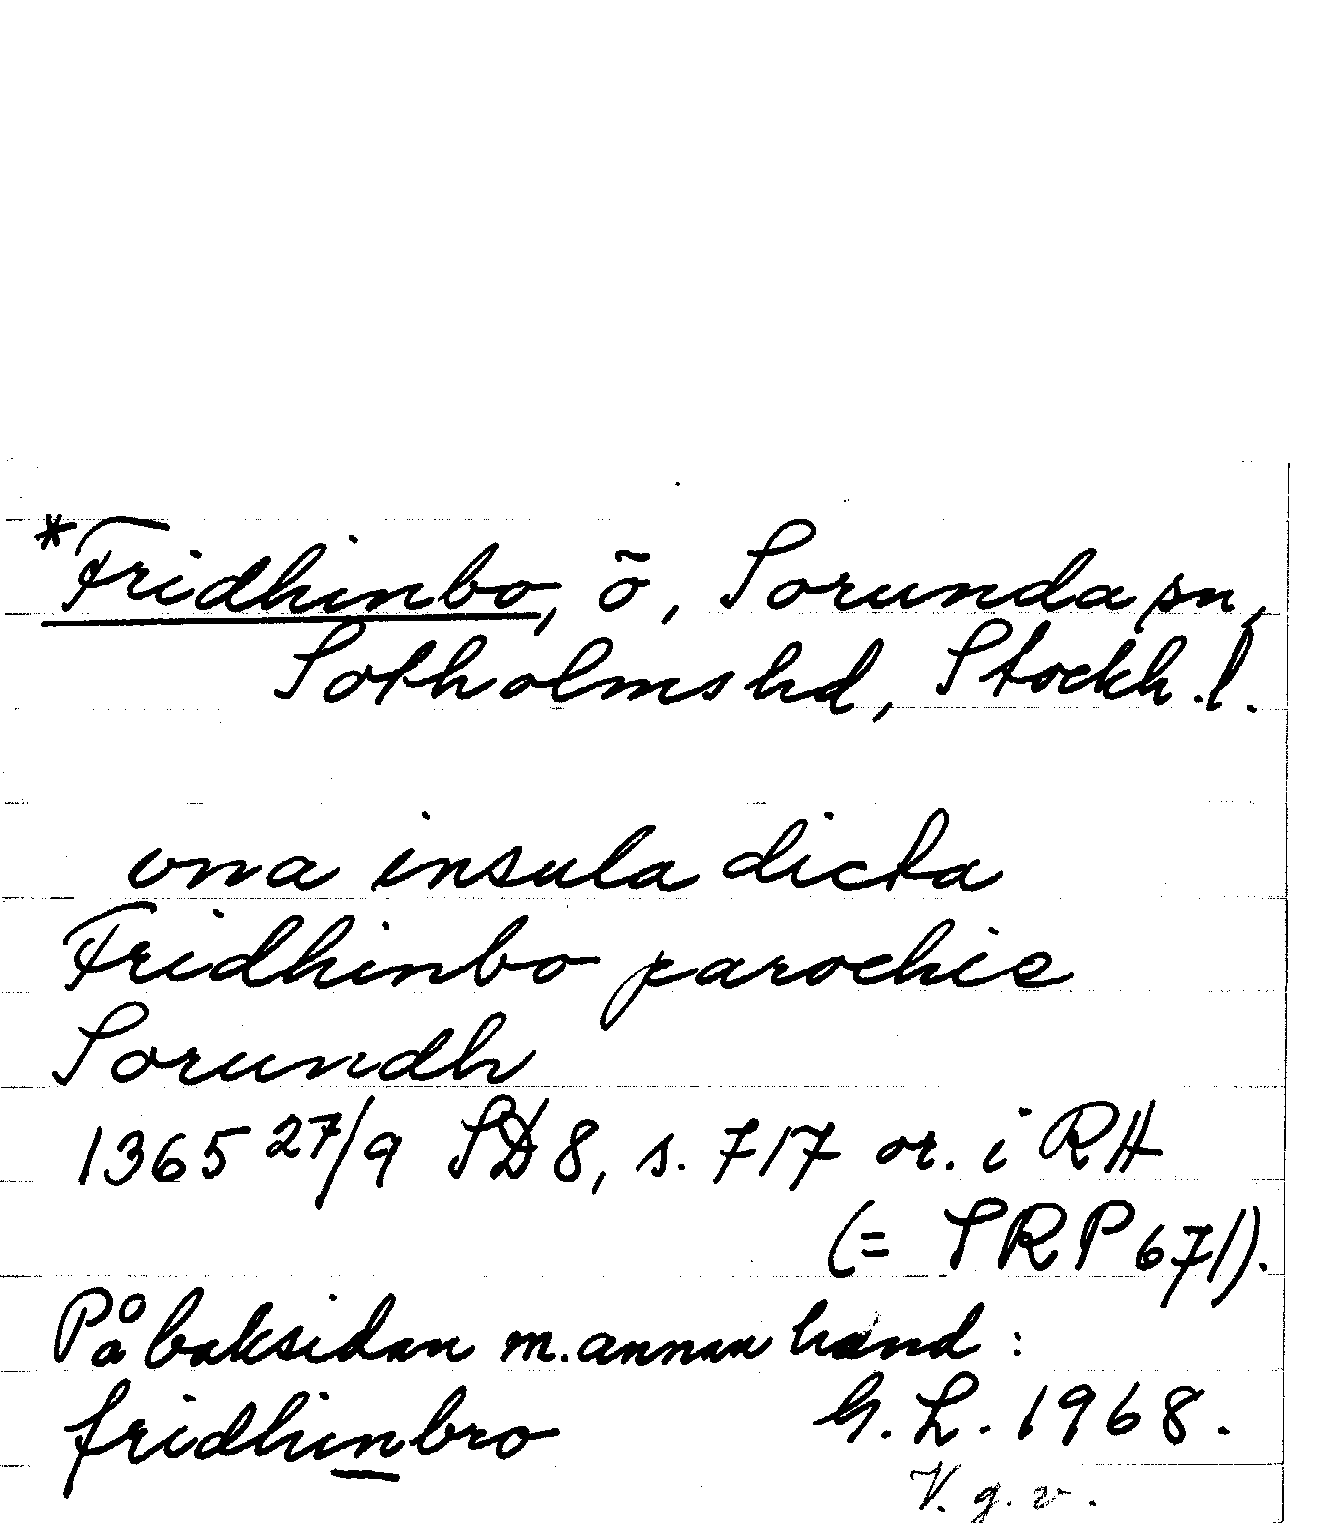 *Fridhinbo, ö, Sorunda sn,
Sotholms hd, Stockh.l.
vna insula dicta
Fridhinbo parochie
Sorundh
1365 27/9 SD 8, s. 717 or. i RH
(= SRP 671).
På baksidan m. annan hand :
fridhinbro G. L. 1968.
V. g. v.